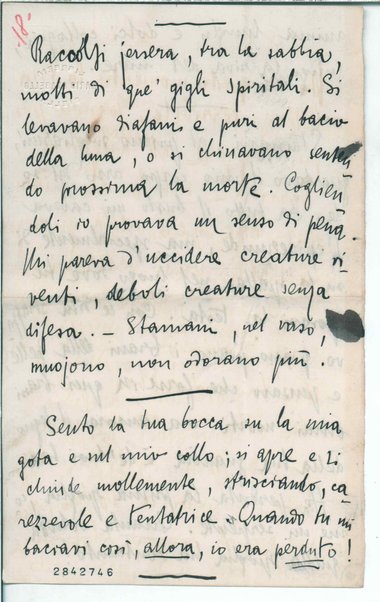 18
Raccolsi jersera, tra la sabbia,
molti di que' gigli spiritali. Si
levavano diafani e puri al bacio
della luna, o si chinavano senten
do prossima la morte. Coglien
doli io provava un senso di pena.
Mi pareva d'uccidere creature vi
venti, deboli creature senza
difesa. – Stamani, nel vaso,
muojono, non odorano più.
Sento la tua bocca su la mia
gota e sul mio collo; si apre e si
chiude mollemente, strisciando, ca
rezzevole e tentatrice. Quando tu mi
baciavi così, allora, io era perduto!
2842746